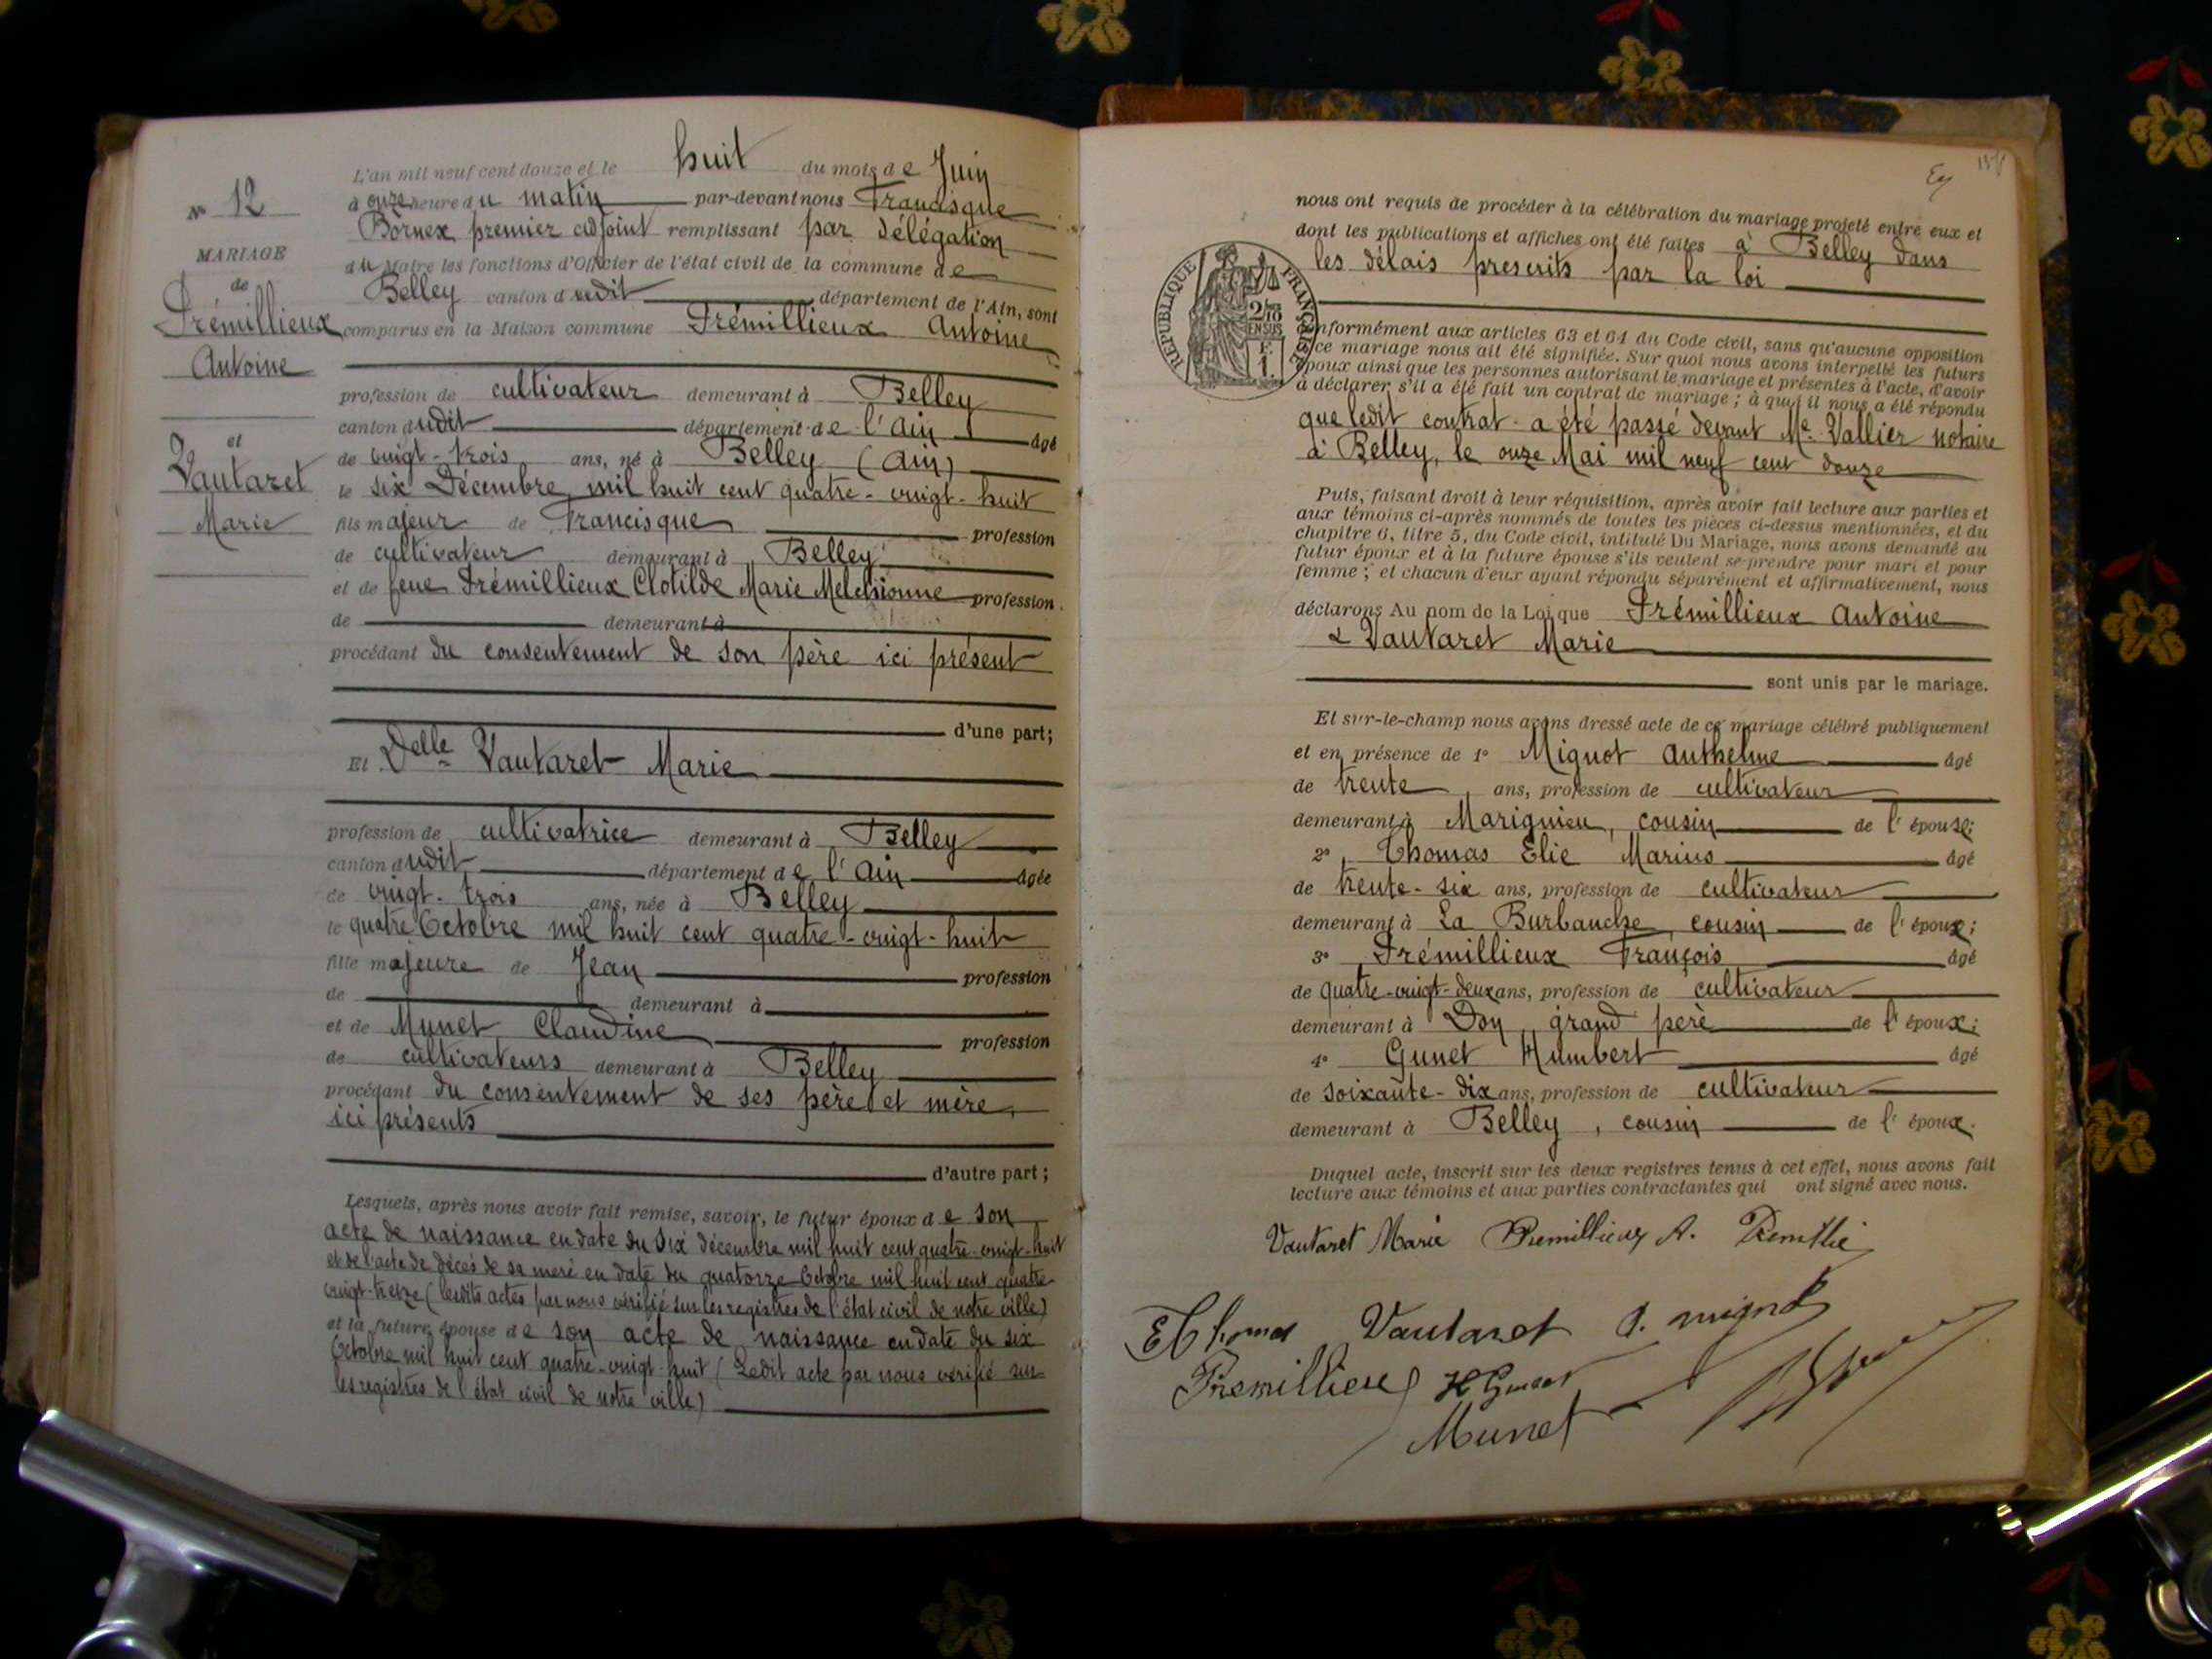 N° 12
MARIAGE
de
Prémillieux
Antoine
et
Vautaret
Marie
L'an mil neuf cent douze et le huit du mois de Juin
à onze heure du matin par-devant nous Francisque
Bornex premier adjoint remplissant par délégation
du Maire les fonctions d'Officier de l'état civil de la commune de
Belley canton dudit département de l'Ain, sont
comparus en la Maison commune Prémillieux Antoine
profession de cultivateur demeurant à Belley
canton dudit département de l'Ain âgé
de vingt-trois ans, né à Belley (Ain)
le six Décembre mil huit cent quatre-vingt-huit
fils majeur de Francisque profession
de cultivateur demeurant à Belley
et de feue Prémillieux Clotilde Marie Melchionne profession
de demeurant à
procédant du consentement de son père ici présent
d'une part;
Et Delle Vautaret Marie
profession de cultivatrice demeurant à Belley
canton dudit département de l'Ain âgée
de vingt-trois ans, née à Belley
le quatre Octobre mil huit cent quatre-vingt-huit
fille majeure de Jean profession
de demeurant à
et de Munet Claudine profession
de cultivateurs demeurant à Belley
procédant du consentement de ses père et mère,
ici présents
d'autre part;
Lesquels, après nous avoir fait remise, savoir, le futur époux de son
acte de naissance en date du Six décembre mil huit cent quatre-vingt-huit
et de l'acte de décès de sa mère en date du quatorze Octobre mil huit cent quatre
vingt-treize (lesdits actes par nous vérifié sur les registres de l'état civil de notre ville)
et la future épouse de son acte de naissance en date du six
Octobre mil huit cent quatre-vingt-huit (Ledit acte par nous vérifié sur
les registres de l'état civil de notre ville)
nous ont requis de procéder à la célébration du mariage projeté entre eux et
dont les publications et affiches ont été faites à Belley dans
les délais prescrits par la loi
RÉPUBLIQUE FRANÇAISE
2/10
EN SUS
F.
1.
conformément aux articles 63 et 64 du Code civil, sans qu'aucune opposition
à ce mariage nous ait été signifiée. Sur quoi nous avons interpellé les futurs
époux ainsi que les personnes autorisant le mariage et présentes à l'acte, d'avoir
à déclarer s'il a été fait un contrat de mariage; à quoi il nous a été répondu
que ledit contrat a été passé devant Me Vallier notaire
à Belley, le onze Mai mil neuf cent douze
Puis, faisant droit à leur réquisition, après avoir fait lecture aux parties et
aux témoins ci-après nommés de toutes les pièces ci-dessus mentionnées, et du
chapitre 6, titre 5, du Code civil, intitulé Du Mariage, nous avons demandé au
futur époux et à la future épouse s'ils veulent se prendre pour mari et pour
femme; et chacun d'eux ayant répondu séparément et affirmativement, nous
déclarons Au nom de la Loi que Prémillieux Antoine
& Vautaret Marie
sont unis par le mariage.
Et sur-le-champ nous avons dressé acte de ce mariage célébré publiquement
et en présence de 1° Mignot Anthelme âgé
de trente ans, profession de cultivateur
demeurant à Marignieu, cousin de l'épouse;
2° Thomas Elie Marius âgé
de trente-six ans, profession de cultivateur
demeurant à La Burbanche, cousin de l'époux;
3° Prémillieux François âgé
de quatre-vingt-deux ans, profession de cultivateur
demeurant à Don, grand père de l'époux;
4° Gunet Humbert âgé
de soixante-dix ans, profession de cultivateur
demeurant à Belley, cousin de l'époux.
Duquel acte, inscrit sur les deux registres tenus à cet effet, nous avons fait
lecture aux témoins et aux parties contractantes qui ont signé avec nous.
Vautaret Marie Premillieux A.
E Thomas Vautaret A. mignot
Premillieux H Gunet
Munet